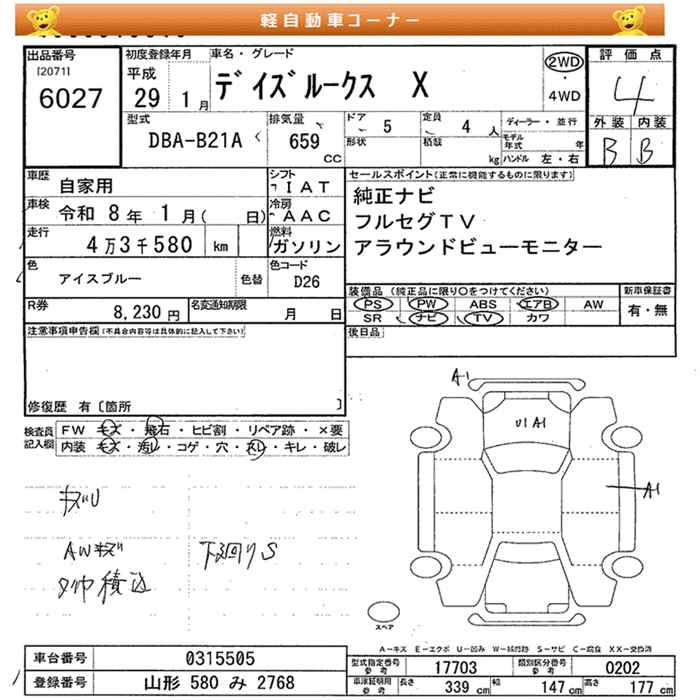 軽自動車コーナー
出品番号
[2071]
6027
初度登録年月
平成
29 1月
車名・グレード
デイズルークス X
2WD
4WD
評価点
4
外装 内装
B B
型式
DBA-B21A
排気量
659
cc
ドア
5
形状
定員
4 人
積載
kg
ディーラー・並行
モデル年式 年
ハンドル 左・右
車歴
自家用
シフト
IAT
車検
令和 8年 1月( 日)
冷房
AAC
走行
4万3千580 km
燃料
ガソリン
色
アイスブルー
色替
色コード
D26
R券
8,230円
名変通知期限
月 日
セールスポイント(正常に機能するものに限ります)
純正ナビ
フルセグTV
アラウンドビューモニター
装備品 (純正品に限り○をつけてください)
PS PW ABS エアB AW
SR ナビ TV カワ
新車保証書
有・無
後日品
注意事項申告欄(不具合内容等は具体的に記入して下さい)
修復歴 有〔箇所 〕
検査員記入欄
FW キズ・飛石・ヒビ割・リペア跡・×要
内装 キズ・汚レ・コゲ・穴・スレ・キレ・破レ
キズU
AWキズ
下回りS
タイヤ積込
A1
U1 A1
A1
スペア
A-キズ E-エクボ U-凹み W-補修跡 S-サビ C-腐食 XX-交換済
車台番号
0315505
登録番号
山形 580 み 2768
型式指定番号
参考
17703
類別区分番号
参考
0202
車庫証明用
参考
長さ
339 cm
幅
147 cm
高さ
177 cm